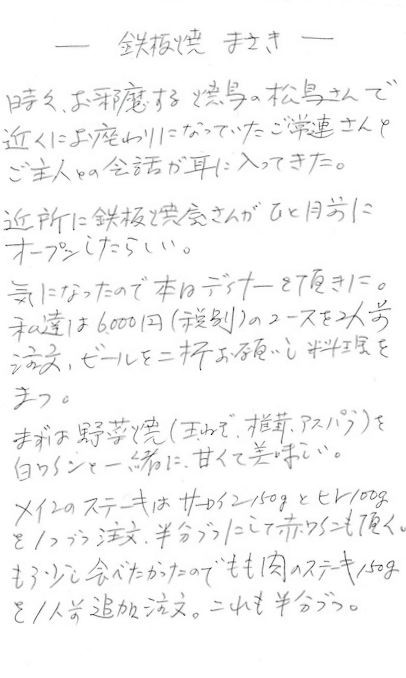 ― 鉄板焼 まさき ―
時々、お邪魔する焼鳥の松鳥さんで
近くにお座わりになっていたご常連さんと
ご主人との会話が耳に入ってきた。
近所に鉄板焼屋さんがひと月前に
オープンしたらしい。
気になったので本日ディナーを頂きに。
私達は6,000円(税別)のコースを2人前
注文、ビールを二杯お願いし料理を
まつ。
まずは野菜焼(玉ねぎ、椎茸、アスパラ)を
白ワインと一緒に、甘くて美味しい。
メインのステーキはサーロイン150gとヒレ100g
を1つづつ注文、半分づつにして赤ワインも頂く。
もう少し食べたかったのでもも肉のステーキ150g
を1人前追加注文。これも半分づつ。